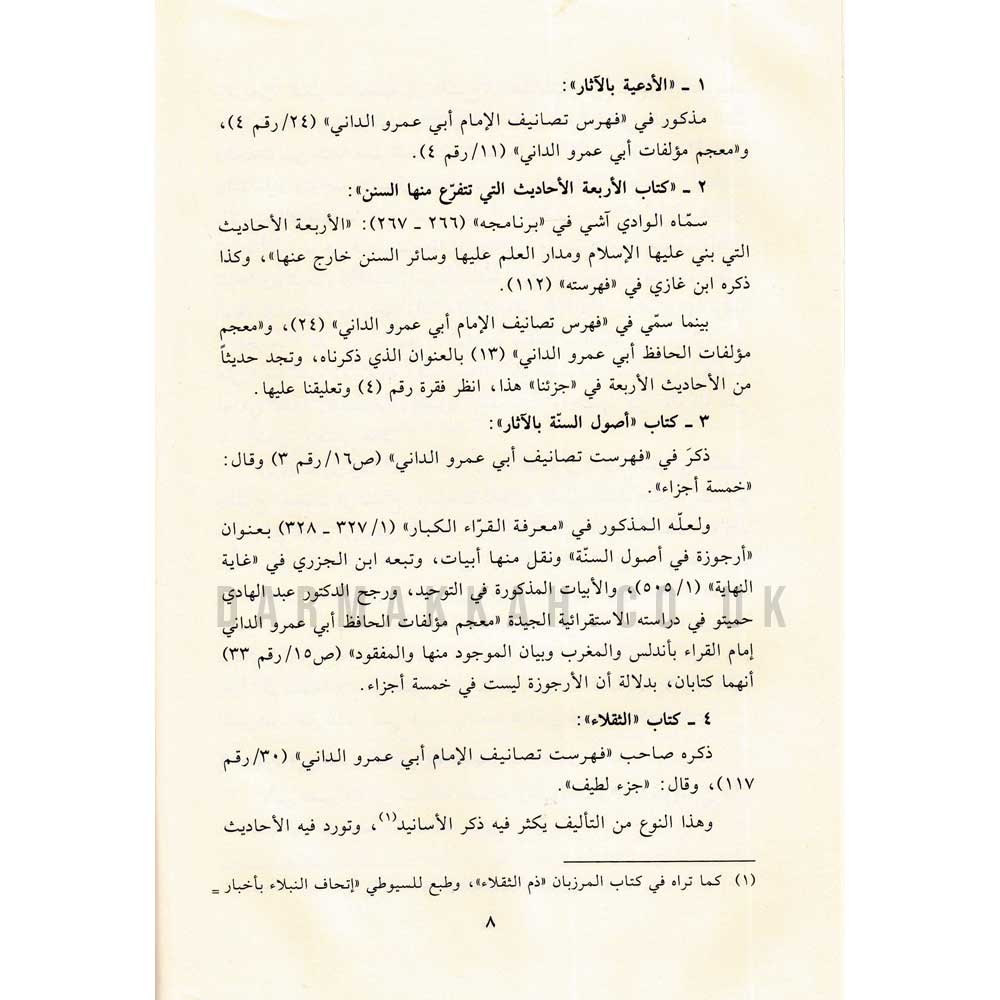 ١ ـ «الأدعية بالآثار»:
مذكور في «فهرس تصانيف الإمام أبي عمرو الداني» (٢٤/ رقم ٤)،
و«معجم مؤلفات أبي عمرو الداني» (١١/ رقم ٤).
٢ ـ «كتاب الأربعة الأحاديث التي تتفرّع منها السنن»:
سمّاه الوادي آشي في «برنامجه» (٢٦٦ ـ ٢٦٧): «الأربعة الأحاديث
التي بني عليها الإسلام ومدار العلم عليها وسائر السنن خارج عنها»، وكذا
ذكره ابن غازي في «فهرسته» (١١٢).
بينما سمّي في «فهرس تصانيف الإمام أبي عمرو الداني» (٢٤)، و«معجم
مؤلفات الحافظ أبي عمرو الداني» (١٣) بالعنوان الذي ذكرناه، وتجد حديثاً
من الأحاديث الأربعة في «جزئنا» هذا، انظر فقرة رقم (٤) وتعليقنا عليها.
٣ ـ كتاب «أصول السنّة بالآثار»:
ذكرَ في «فهرست تصانيف أبي عمرو الداني» (ص١٦/ رقم ٣) وقال:
«خمسة أجزاء».
ولعلّه المذكور في «معرفة القرّاء الكبار» (١/ ٣٢٧ ـ ٣٢٨) بعنوان
«أرجوزة في أصول السنة» ونقل منها أبيات، وتبعه ابن الجزري في «غاية
النهاية» (١/ ٥٠٥)، والأبيات المذكورة في التوحيد، ورجح الدكتور عبد الهادي
حميتو في دراسته الاستقرائية الجيدة «معجم مؤلفات الحافظ أبي عمرو الداني
إمام القراء بأندلس والمغرب وبيان الموجود منها والمفقود» (ص١٥/ رقم ٣٣)
أنهما كتابان، بدلالة أن الأرجوزة ليست في خمسة أجزاء.
٤ ـ كتاب «الثقلاء»:
ذكره صاحب «فهرست تصانيف الإمام أبي عمرو الداني» (٣٠/ رقم
١١٧)، وقال: «جزء لطيف».
وهذا النوع من التأليف يكثر فيه ذكر الأسانيد(١)، وتورد فيه الأحاديث
(١) كما تراه في كتاب المرزبان «ذم الثقلاء»، وطبع للسيوطي «إتحاف النبلاء بأخبار =
٨
DARMAKKAH.CO.UK